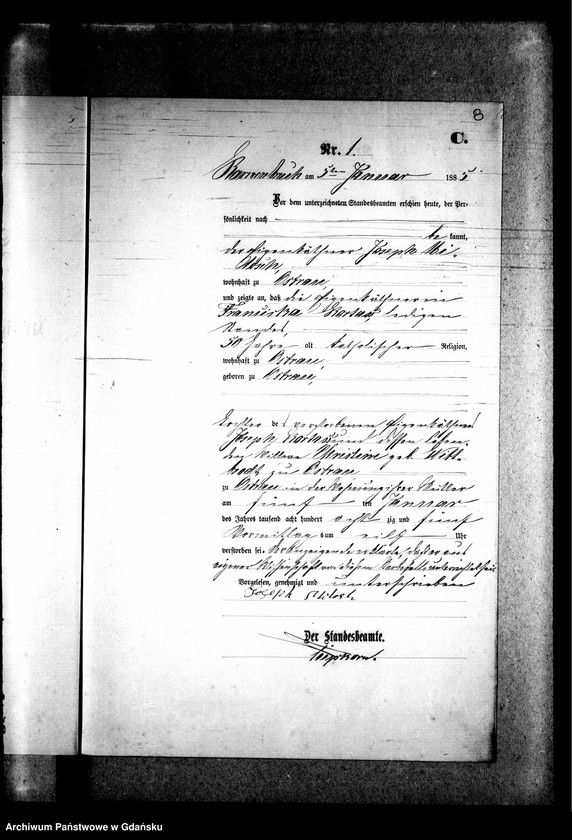 8
C.
Nr. 1.
am 5ten Januar 1885.
Vor dem unterzeichneten Standesbeamten erschien heute, der Per-
sönlichkeit nach
kannt,
der Eigenkäthner Joseph
wohnhaft zu Ostrau,
und zeigte an, daß die Eigenkäthnerin
Franciska ledigen
Standes,
50 Jahre alt katholischer Religion,
wohnhaft zu Ostrau,
geboren zu Ostrau,
Tochter des verstorbenen Eigenkäthners
Joseph und dessen
Christine geb.
zu Ostrau
zu Ostrau in der Wohnung ihrer Mutter
am fünften Januar
des Jahres tausend acht hundert achtzig und fünf
Vormittags um eilf Uhr
verstorben sei. Der Anzeigende erklärte, daß er aus
eigener Wissenschaft von diesem Sterbefalle unterrichtet sei.
Vorgelesen, genehmigt und unterschrieben
Joseph
Der Standesbeamte.
Archiwum Państwowe w Gdańsku